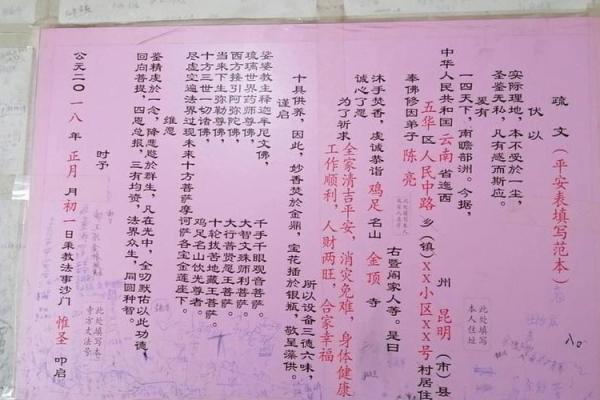 疏文（平安表填写范本）
伏以
实际理地，本不受於一尘，
圣鉴无私，凡有感而斯应。
爰有
一四天下，南瞻部洲。今据，
中华人民共和国云南省迤西 州昆明（市）县
五华区人民中路乡（镇）××小区××号村居住
奉佛修因弟子陈亮 右暨阖家人等。是日
沐手焚香，虔诚恭诣鸡足名山金顶寺
诚心了愿
为了祈求全家清吉平安，消灾免难，身体健康
工作顺利，人财两旺，合家幸福
所以设备三德六味，
十具供养，因此，妙香焚於金鼎，宝花插於银瓶，敬呈藻供。
谨启
娑婆教主释迦牟尼文佛，
琉璃世界药师尊佛，
西方接引阿弥陀佛，
当来下生弥勒尊佛，
十方三世一切诸佛，
尽虚空遍法界过现未来十方菩萨摩诃萨各宝金莲座下。
千手千眼观音菩萨。
大智文殊师利菩萨。
大行普贤愿王菩萨。
十轮拔苦地藏王菩萨。
鸡足名山饮光尊者。
维愿
鉴精虔於一念，降慈愍於群生，凡在光中，全叨默佑以此功德，
回向菩提，四恩总报，三有均资，法界众生，同圆种智。
时予
公元二〇一八年正月月初一日秉教法事沙门惟圣叩启
此处填写本
人住址
此处填写本
寺方丈法号